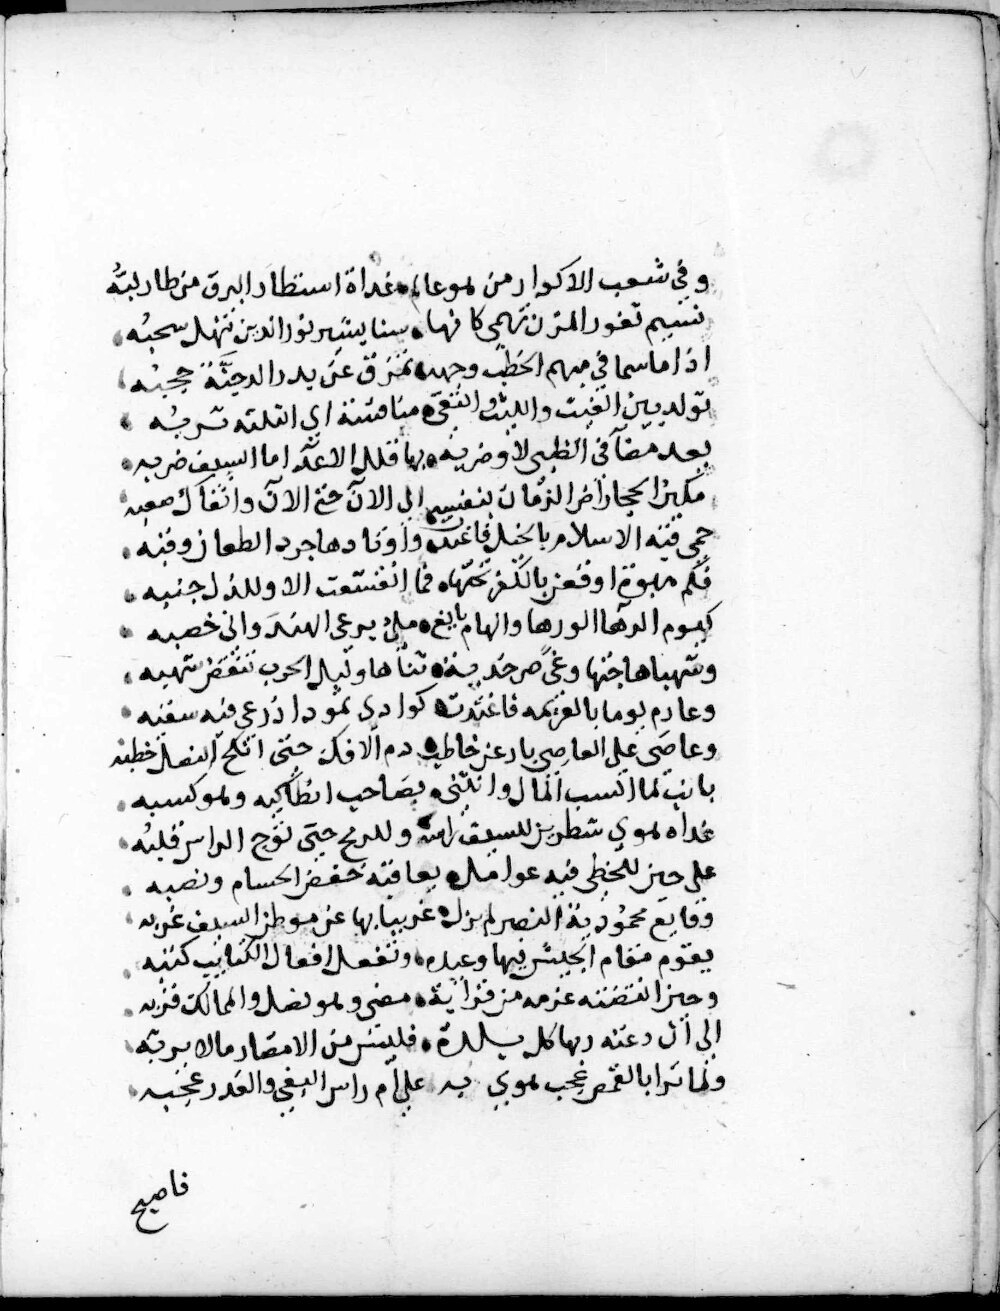 وفي شعب الاكوار من لموعالم غداة استطار البرق من طار لبّهُ
نسيم ثغور المزن تهمي كانها سنا بشير نور الدين تنهل سحبه
اذا ما سما في مبهم الخطب وجهه تمزق عن بدر الدجنّة حجبه
تولد بين الغيث والليث والتقى منافثة اي اتلته تربه
بعد مضآ في الظبى لا وضريبه بها فلل الاعدآ اما السيف ضربه
مكين الحجا راض الزمان بنفسه الى الان حتى الان وانقاك صعبه
حمى قبة الاسلام بالخيل فاغتدت واوتادها جرد الطعان وقبه
فكم هبوة اوقعن بالكفر تحتها فما انقشعت الا وللذل جنبه
كيوم الرها الورها والهام يانع ملئ يرعى الهند وانى خصبه
وشهبا هاجتها وغى صرخدية ثناها وليل الحرب تنقض شهبه
وعارم يوما بالعزيمه فاغتدت كوادي ثمود اذ رعى فيه سقبه
وعاصى على العاصي بارعن خاطب دم الافك حتى انكح النصل خطبه
بانب لما اكسب المال وانثنى بصاحب انطاكيه ولمو كسبه
غداة لموي شطرين للسيف رامه وللرمح حتى توج الراس قلبه
على حين للخطى فيه عوامل يعاقبه خفض الحسام ونصبه
وقايع محمودية النصر لم يزل غريبا بها عن موطن السيف غربه
يقوم مقام الجيش فيها وعيده وتفعل افعال الكتايب كتبه
وحين انتضته عزمه من قرابه مضى ولمو نصل والممالك قربه
الى ان دعته ربها كل بلدة فليس من الامصار ما لا يربه
ولما ترا بالقمص عجب لموي به على ام راس البغي والغدر عجبه
فاصبح